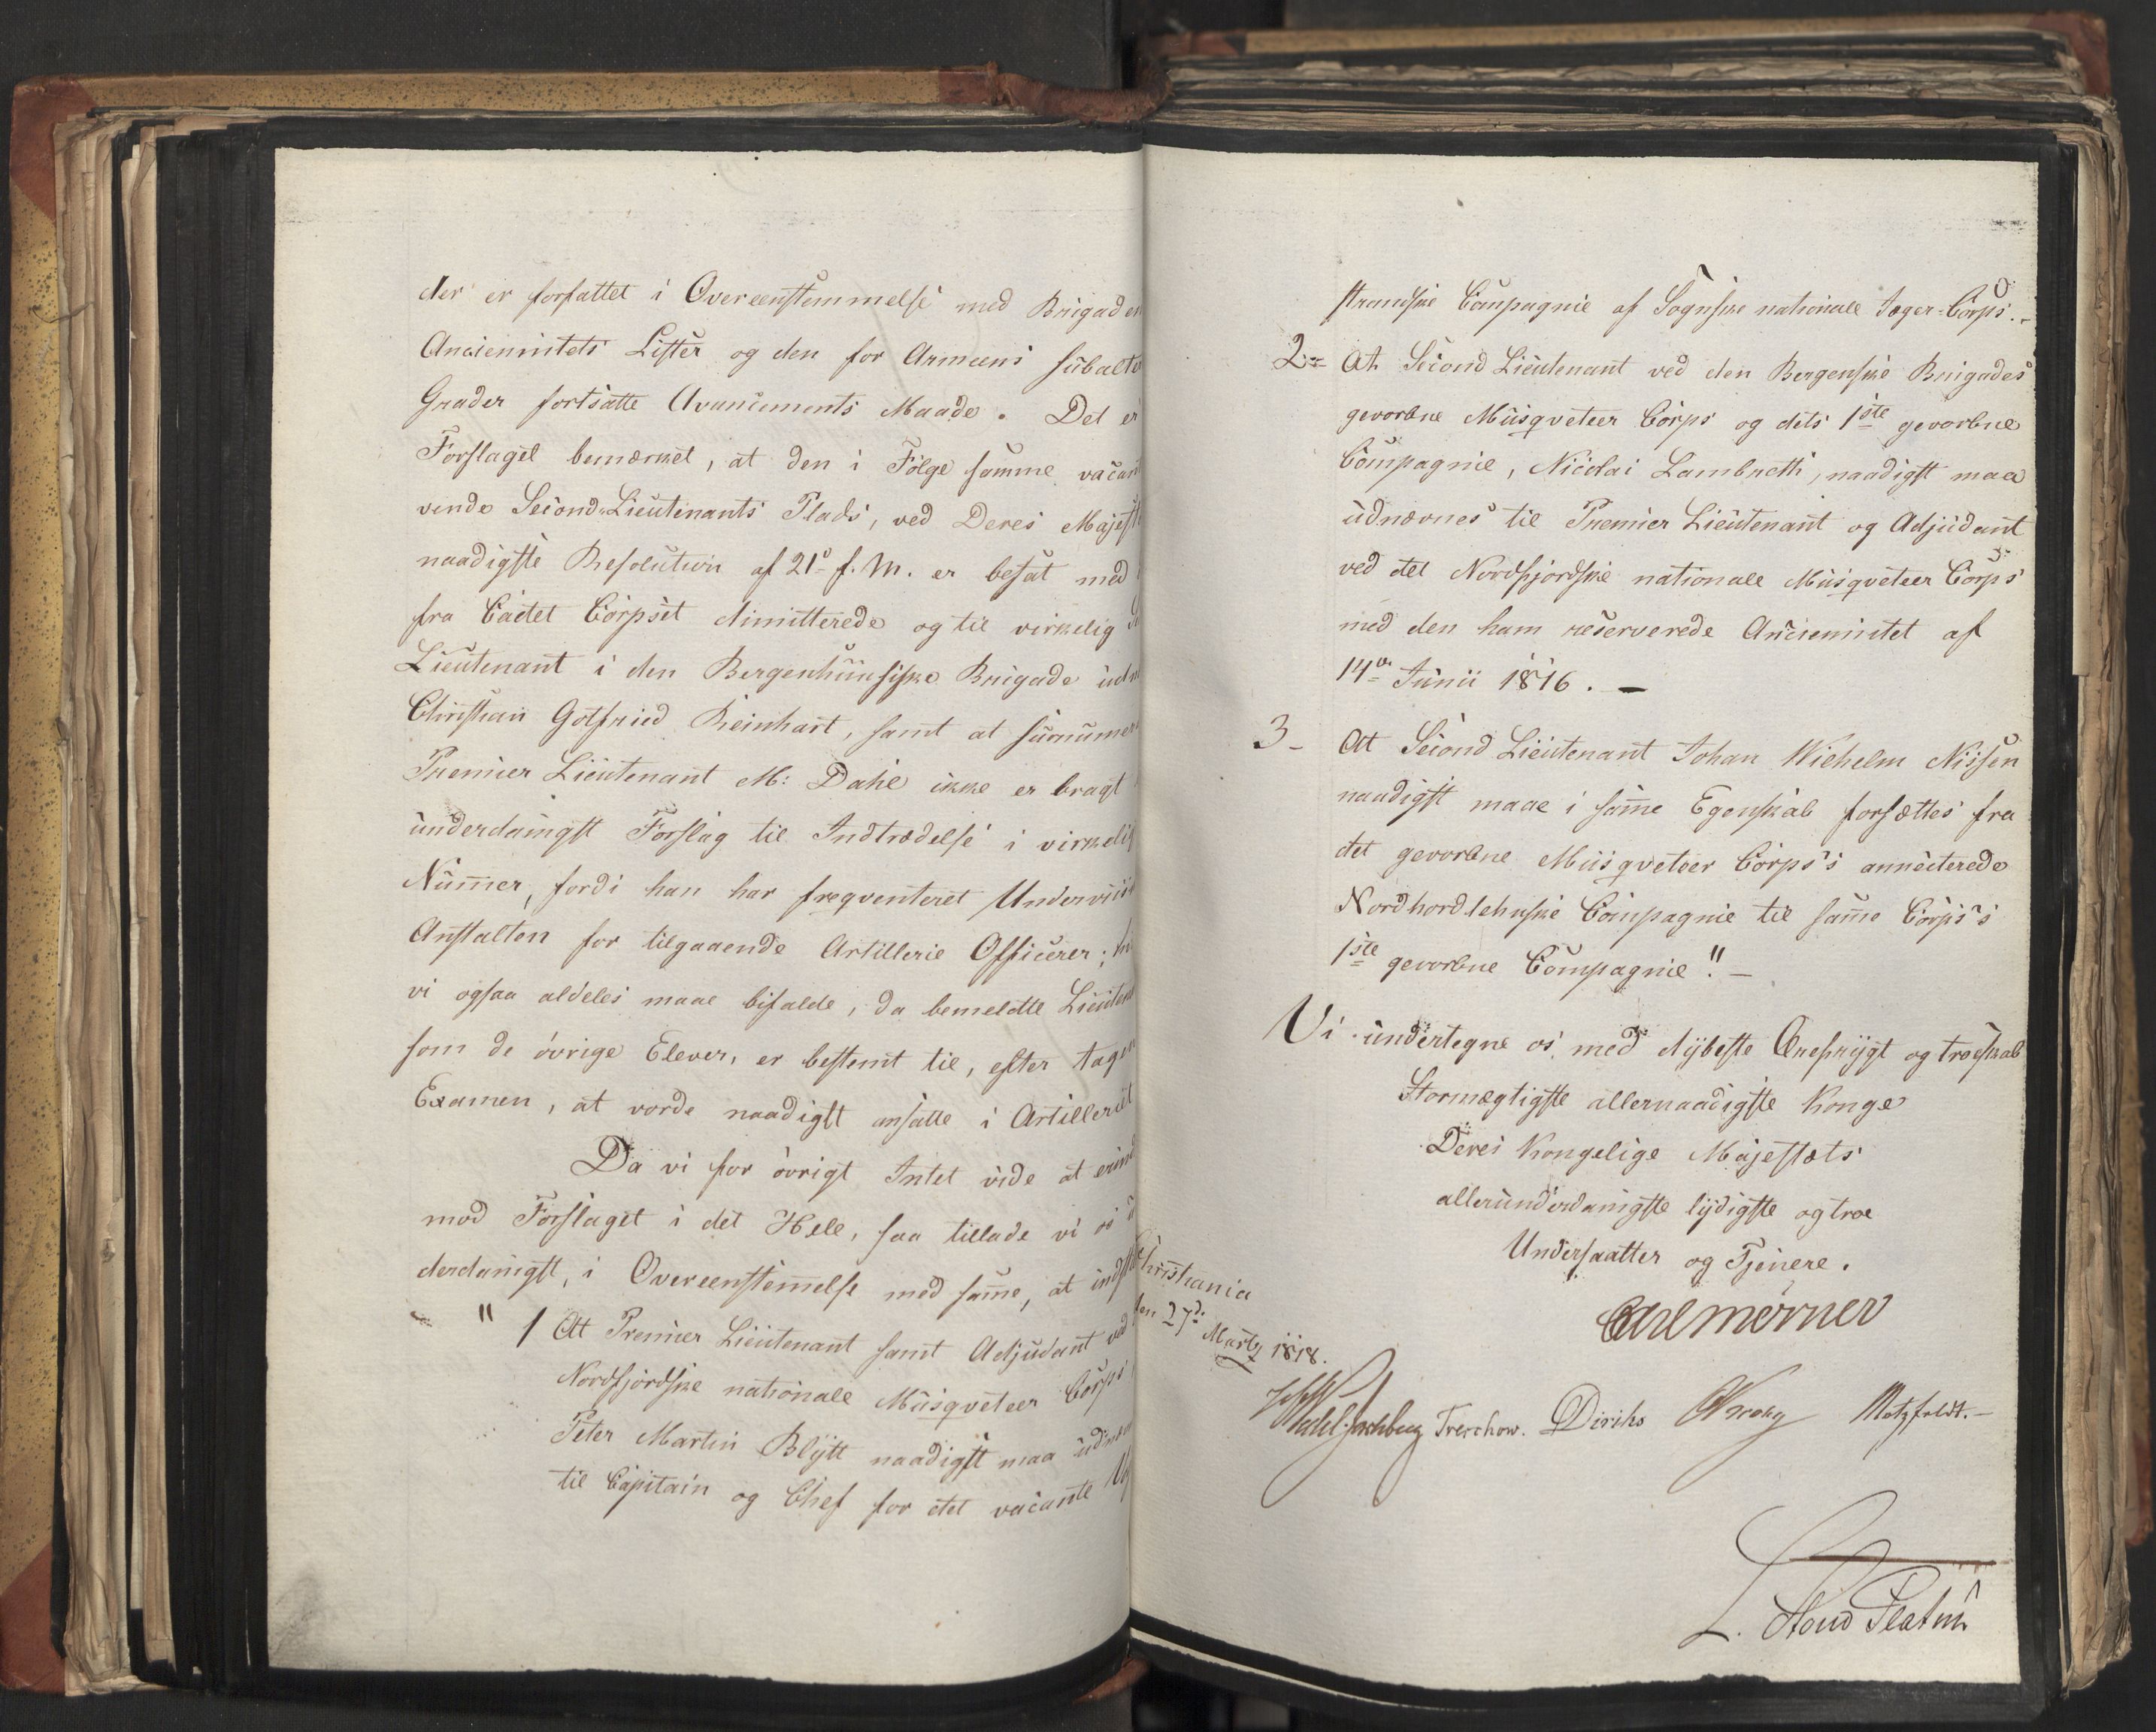 der er forfattet i Overeenstemmelse med Brigaden
Anciennitets Lister og den for Armeens subalte
Grader fortsatte Avancements Maade. Det er
Forslaget bemærket, at den i Følge samme vacant
vende Second-Lieutenants Plads, ved Deres Majest
naadigste Resolution af 21de f. M. er besat med
fra Cadet Corpset dimitterede og til virkelig Se
Lieutenant i den Bergenhuusiske Brigade udn
Christian Gotfried Reinhart, samt at surnumer
Premier Lieutenant M: Dahl ikke er bragt
underdanigst Forslag til Indtrædelse i virkelig
Nummer, fordi han har freqventeret Underviis
Anstalten for tilgaaende Artillerie Officerer; hv
vi ogsaa aldeles maae bifalde, da bemeldte Lieuten
som de øvrige Elever, er bestemt til, efter tagen
Examen, at vorde naadigst ansatte i Artilleriet
Da vi for øvrigt Intet vide at erind
mod Forslaget i det Hele, saa tillade vi os u
derdanigst, i Overeenstem̅else med sam̅e, at indst
" 1 At Premier Lieutenant samt Adjudant ved
Nordfjordske nationale Musqveteer Corps
Peter Martin Blytt naadigst maa udnæv
til Capitain og Chef for det vacante Uf
strandske Compagnie af Sognske nationale Jæger-Corps.-
2- At Second Lieutenant ved den Bergenske Brigades
gevorbne Musqveteer Corps og dets 1ste gevorbne
Compagnie, Nicolai Lambrett, naadigst maa
udnævnes til Premier Lieutenant og Adjudant
ved det Nordfjordske nationale Musqveteer Corps
med den ham reserverede Anciennitet af
14de Junii 1816. —
3- At Second Lieutenant Johan Wilhelm Nissen
naadigst maae i sam̅e Egenskab forsættes fra
det gevorbne Musqveteer Corps's annecterede
Nordhordlehnske Compagnie til sam̅e Corps's
1ste gevorbne Compagnie". —
Vi undertegne os med dybeste Ærefrygt og troeskab
Stormægtigste allernaadigste Konge
Deres Kongelige Majestæts
allerunderdanigste lydigste og troe
Undersaatter og Tjenere.
Christiania
den 27de Marty 1818.
Carl Mörner
Wedel Jarlsberg Treschow. Diriks Krogh Motzfeldt.-
L. Stoud Platou